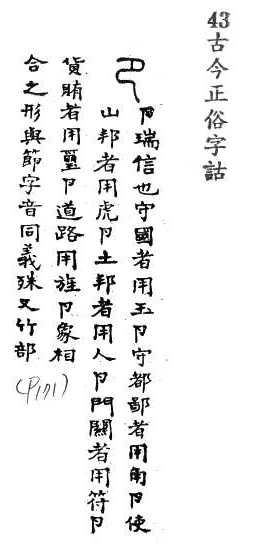 43古今正俗字詁
㔾
卪瑞信也守國者用玉卪守都鄙者用角卪使
山邦者用虎卪土邦者用人卪門關者用符卪
貨賄者用璽卪道路用旌卪象相
合之形與節字音同義殊又竹部
(P171)